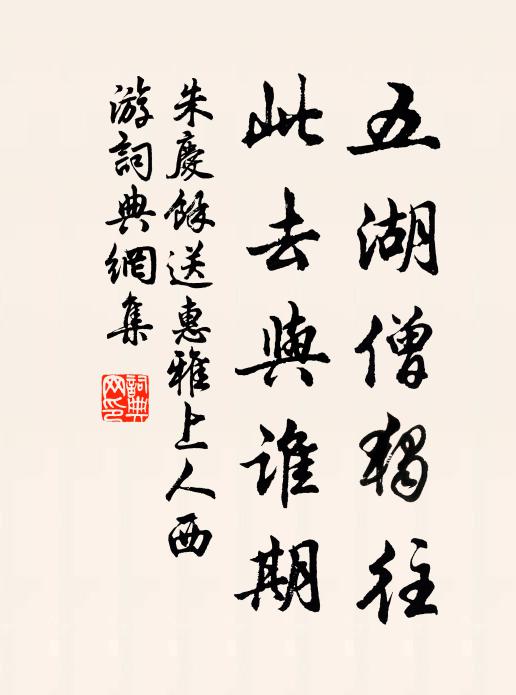 五湖僧獨往
此去與誰期
朱慶餘送惠雅上人西
游詞典網集
詞典网印